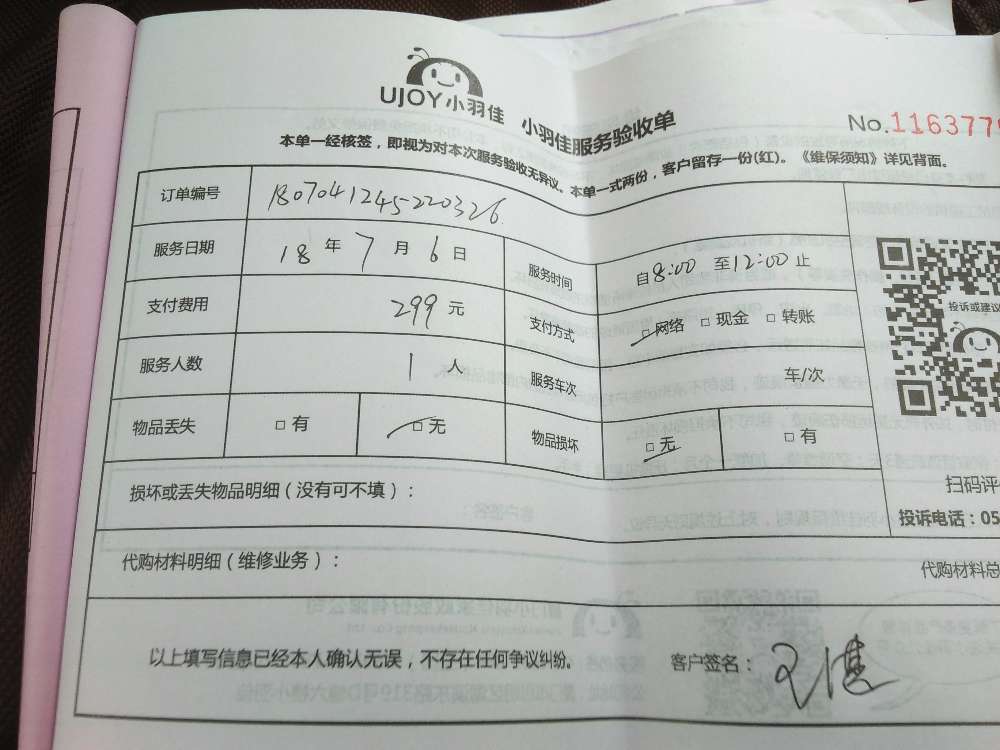 UJOY小羽佳 小羽佳服务验收单 No.116377
本单一经核签，即视为对本次服务验收无异议。本单一式两份，客户留存一份(红)。《维保须知》详见背面。
订单编号 1807041245220326
服务日期 18 年 7 月 6 日 服务时间 自8:00 至12:00止
支付费用 299 元 支付方式 □网络 □现金 □转账
投诉或建议
服务人数 1 人 服务车次 车/次
物品丢失 □有 □无 物品损坏 □无 □有
扫码评
损坏或丢失物品明细（没有可不填）：
投诉电话：05
代购材料明细（维修业务）： 代购材料总
以上填写信息已经本人确认无误，不存在任何争议纠纷。 客户签名：